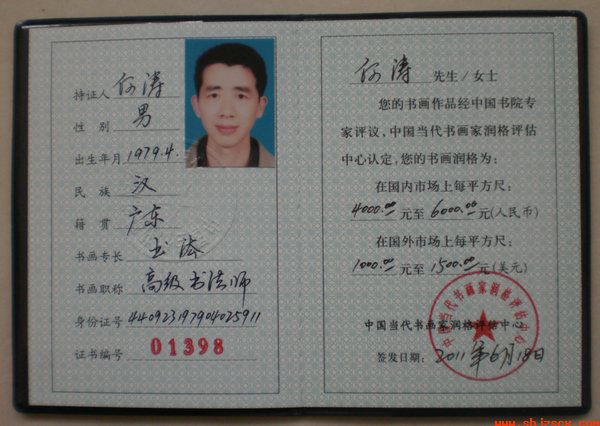 持证人 何涛
性 别 男
出生年月 1979.4.
民 族 汉
籍 贯 广东
书画专长 书法
书画职称 高级书法师
身份证号 440923197904025911
证书编号 01398
何涛 先生/女士
您的书画作品经中国书院专
家评议,中国当代书画家润格评估
中心认定,您的书画润格为:
在国内市场上每平方尺:
4000.00元至6000.00元(人民币)
在国外市场上每平方尺:
1000.00元至1500.00元(美元)
中国当代书画家润格评估中心
中国当代书画家润格评估中心
签发日期: 2011年6月18日